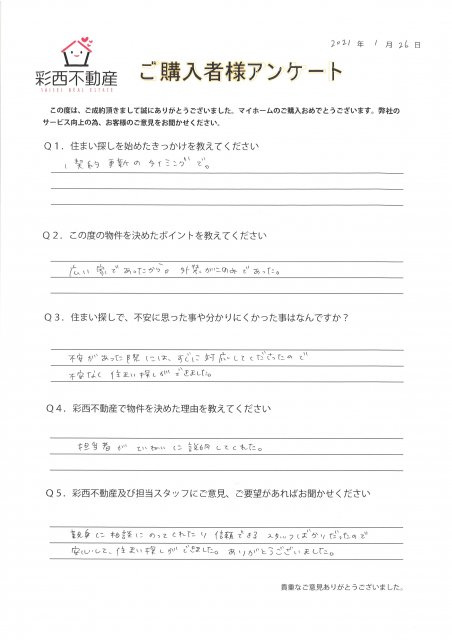 2021 年 1 月 26 日
彩西不動産
SAISEI REAL ESTATE
ご購入者様アンケート
この度は、ご成約頂きまして誠にありがとうございました。マイホームのご購入おめでとうございます。弊社の
サービス向上の為、お客様のご意見をお聞かせください。
Q1．住まい探しを始めたきっかけを教えてください
契約更新のタイミングで。
Q2．この度の物件を決めたポイントを教えてください
広い家であったから。外装がこのみであった。
Q3．住まい探しで、不安に思った事や分かりにくかった事はなんですか？
不安があった際には、すぐに対応してくださったので
不安なく住まい探しができました。
Q4．彩西不動産で物件を決めた理由を教えてください
担当者がていねいに説明してくれた。
Q5．彩西不動産及び担当スタッフにご意見、ご要望があればお聞かせください
親身に相談にのってくれたり信頼できるスタッフばかりだったので
安心して、住まい探しができました。ありがとうございました。
貴重なご意見ありがとうございました。